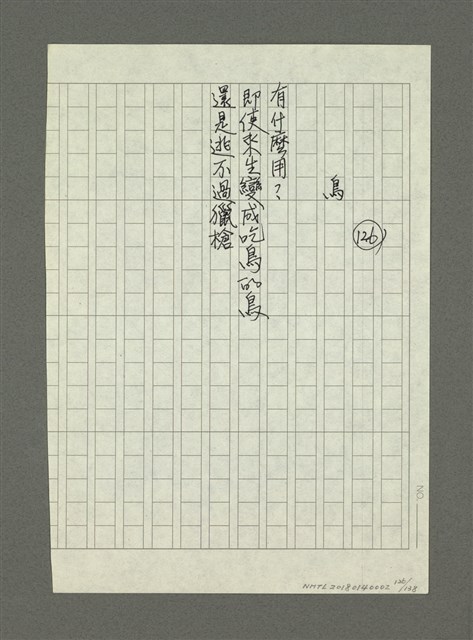 126
鳥
有什麼用？
即使來生變成吃鳥的鳥
還是逃不過獵槍
NO.
NMTL20180140002 126/138